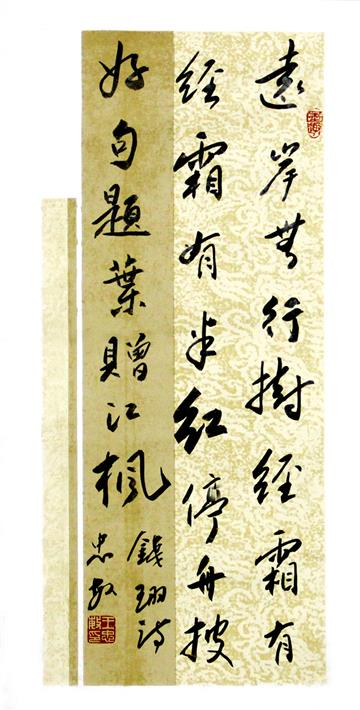 遠岸無行樹經霜有
經霜有半紅停舟搜
好句題葉贈江楓
錢珝詩
忠敏